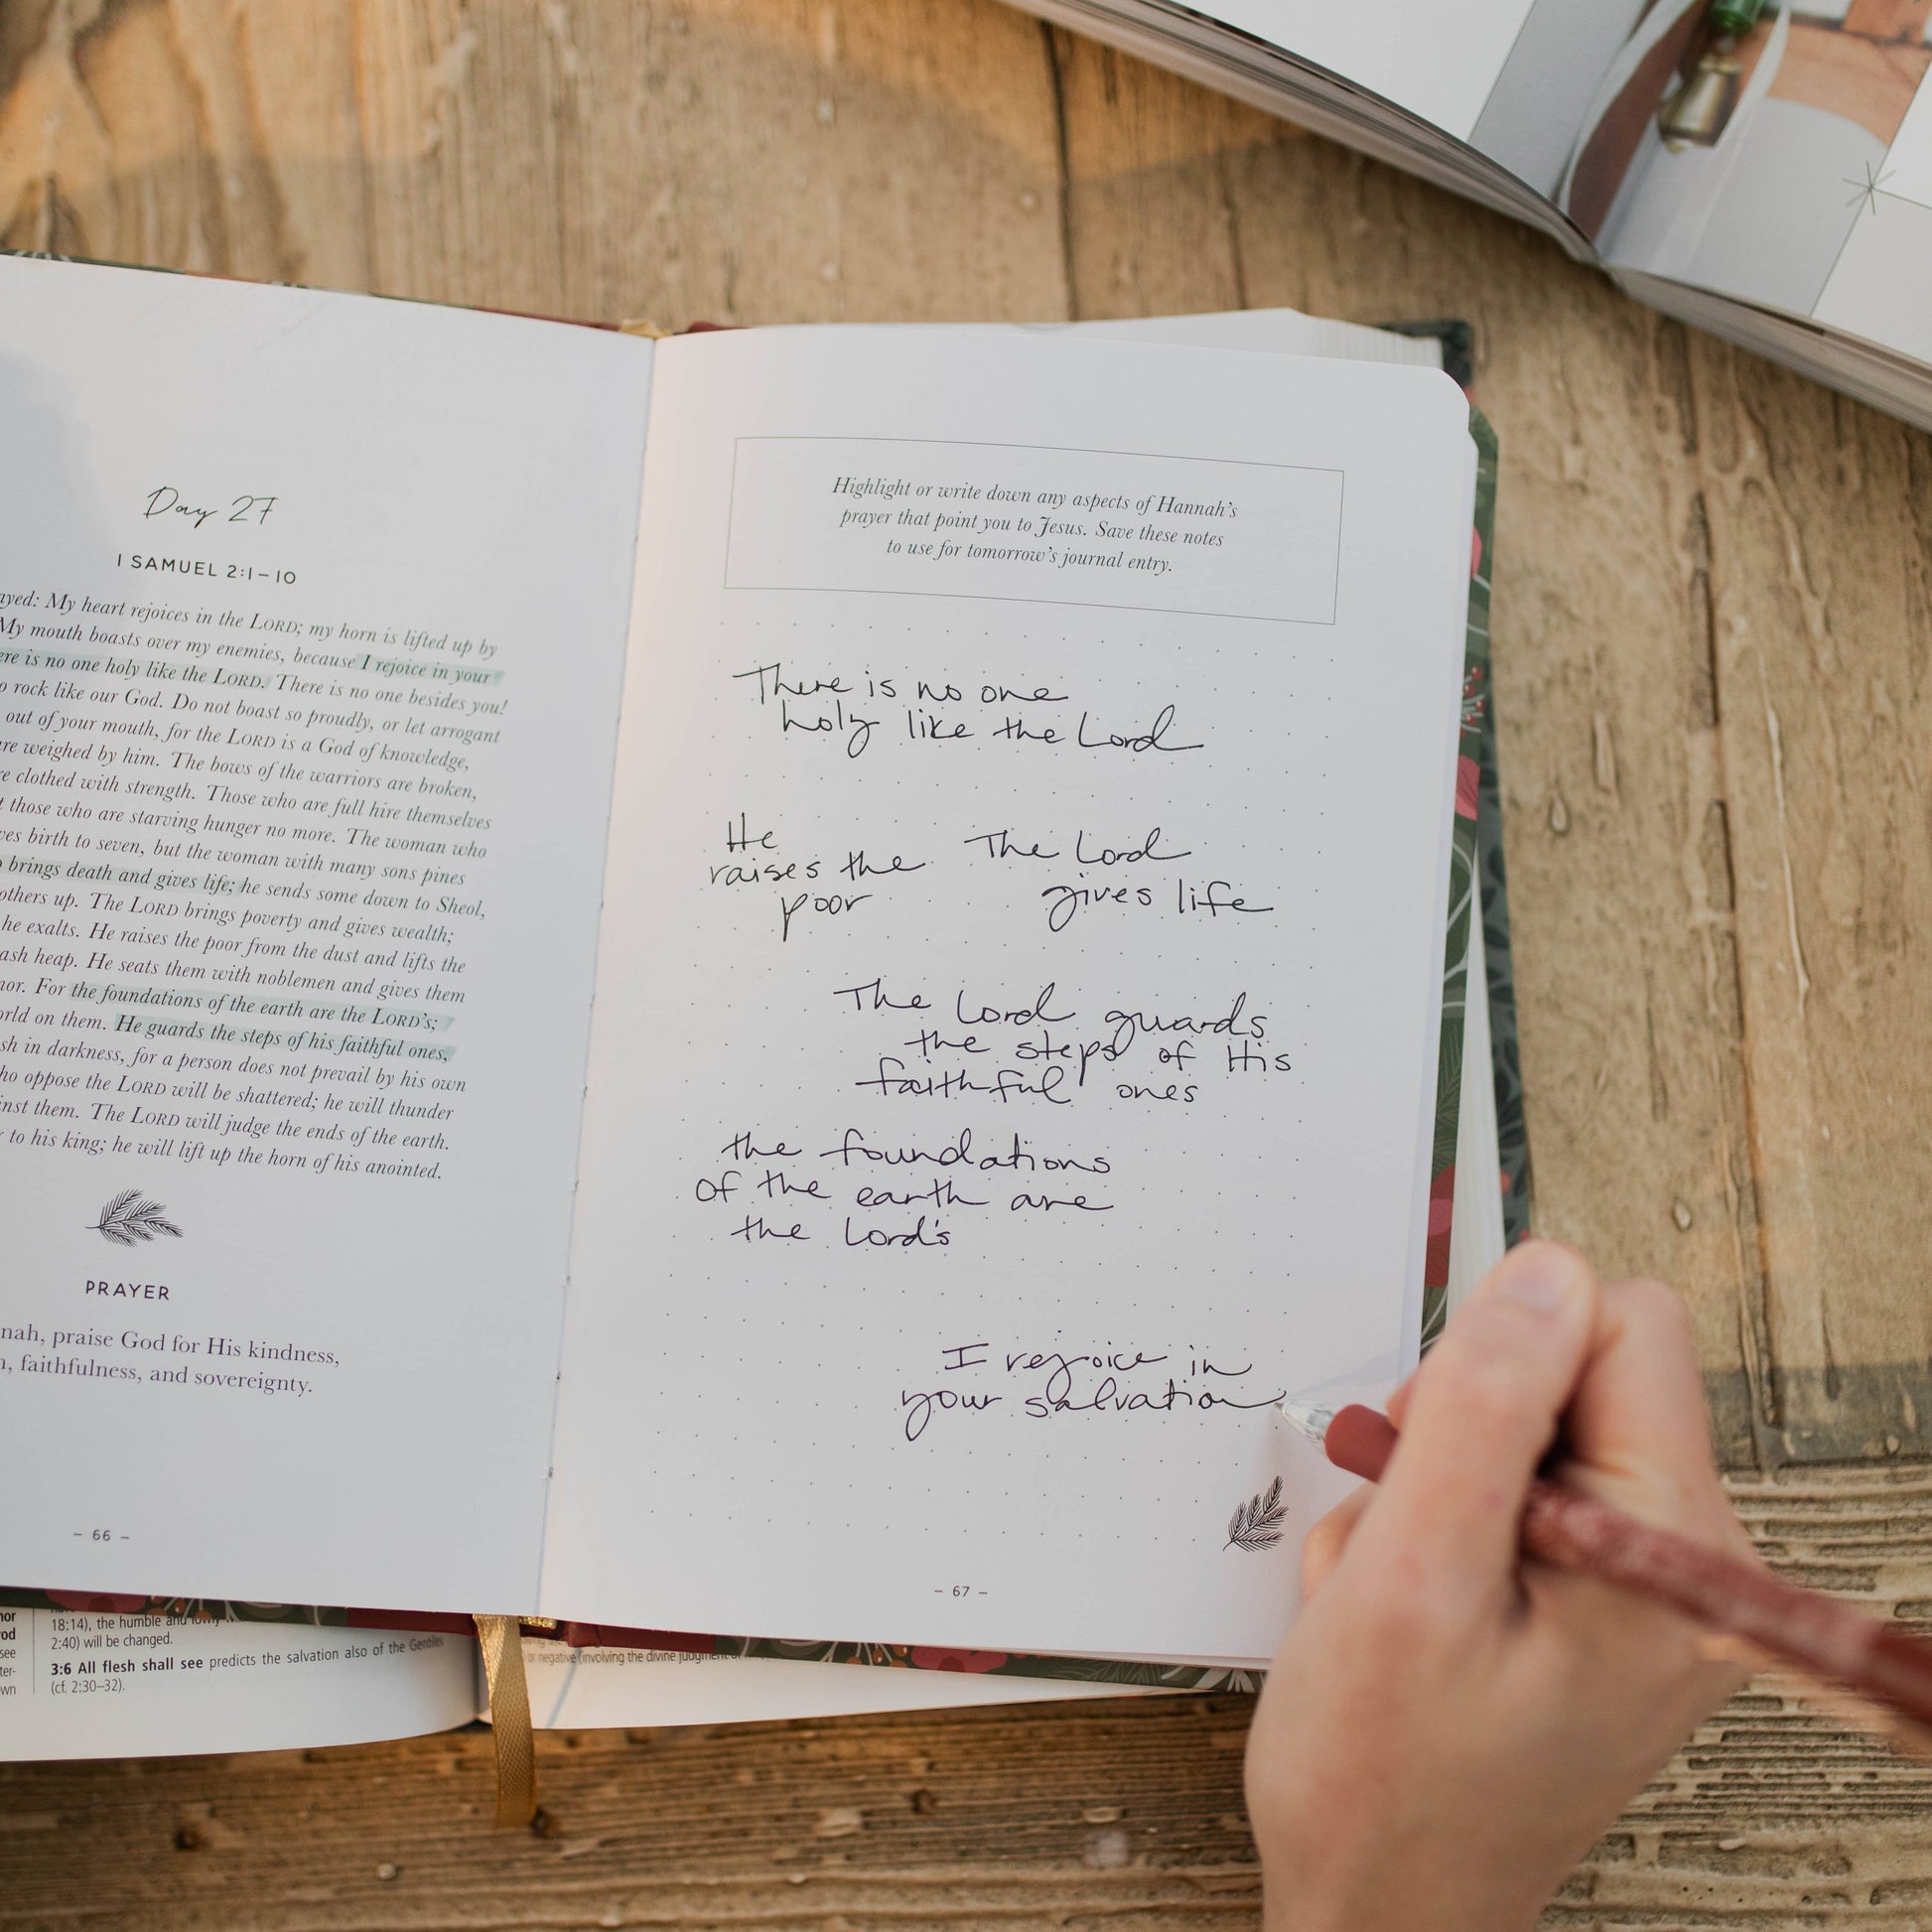 Day 27
1 SAMUEL 2:1–10
My heart rejoices in the LORD; my horn is lifted up by
My mouth boasts over my enemies, because I rejoice in your
is no one holy like the LORD. There is no one besides you!
rock like our God. Do not boast so proudly, or let arrogant
out of your mouth, for the LORD is a God of knowledge,
weighed by him. The bows of the warriors are broken,
clothed with strength. Those who are full hire themselves
those who are starving hunger no more. The woman who
birth to seven, but the woman with many sons pines
brings death and gives life; he sends some down to Sheol,
others up. The LORD brings poverty and gives wealth;
he exalts. He raises the poor from the dust and lifts the
ash heap. He seats them with noblemen and gives them
For the foundations of the earth are the LORD's;
on them. He guards the steps of his faithful ones,
in darkness, for a person does not prevail by his own
oppose the LORD will be shattered; he will thunder
them. The LORD will judge the ends of the earth.
to his king; he will lift up the horn of his anointed.
PRAYER
praise God for His kindness,
faithfulness, and sovereignty.
– 66 –
Highlight or write down any aspects of Hannah's
prayer that point you to Jesus. Save these notes
to use for tomorrow's journal entry.
There is no one
holy like the Lord
He
raises the
poor
The Lord
gives life
The Lord guards
the steps of His
faithful ones
the foundations
of the earth are
the Lord's
I rejoice in
your salvation
– 67 –
18:14), the humble and
2:40) will be changed.
3:6 All flesh shall see predicts the salvation also of the Gentiles
(cf. 2:30–32).
or negative (involving the divine judgment